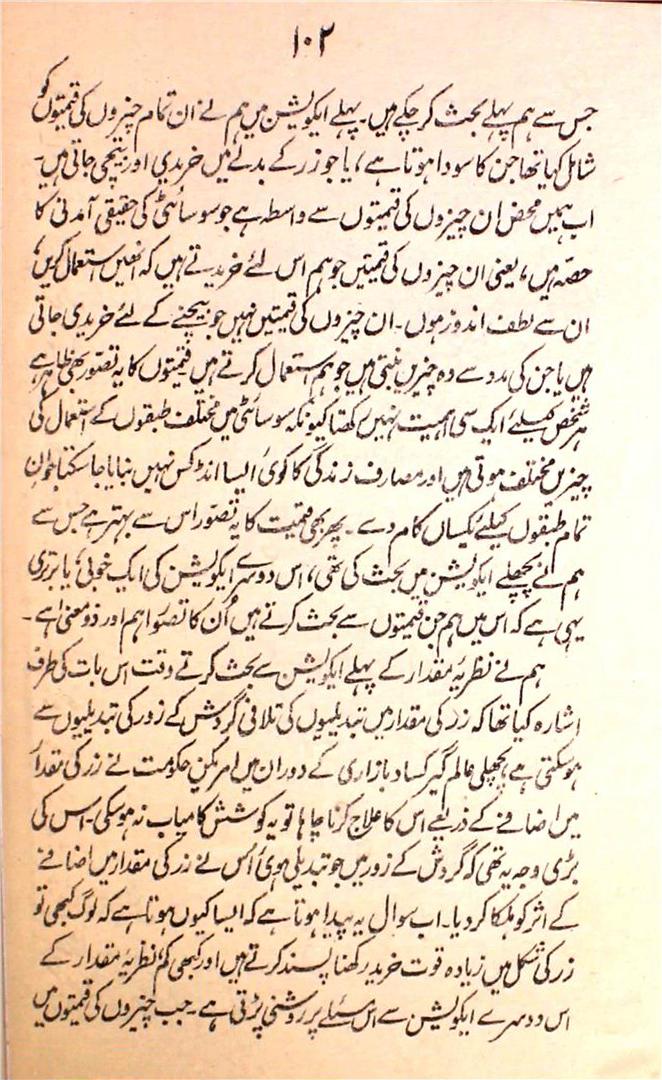 ۱۰۲
جس سے ہم پہلے بحث کر چکے ہیں۔ پہلے ایکویشن میں ہم نے ان تمام چیزوں کی قیمتوں کو
شامل کیا تھا جن کا سودا ہوتا ہے، یا جو زر کے بدلے میں خریدی اور بیچی جاتی ہیں۔
اب ہمیں محض ان چیزوں کی قیمتوں سے واسطہ ہے جو سوسائٹی کی حقیقی آمدنی کا
حصہ ہیں، یعنی ان چیزوں کی قیمتیں جو ہم اس لئے خریدتے ہیں کہ انھیں استعمال کریں،
ان سے لطف اندوز ہوں۔ ان چیزوں کی قیمتیں نہیں جو بیچنے کے لئے خریدی جاتی
ہیں یا جن کی مدد سے وہ چیزیں بنتی ہیں جو ہم استعمال کرتے ہیں قیمتوں کا یہ تصور بھی ظاہر ہے
ہر شخص کیلئے ایک سی اہمیت نہیں رکھتا کیونکہ سوسائٹی میں مختلف طبقوں کے استعمال کی
چیزیں مختلف ہوتی ہیں اور مصارف زندگی کا کوئی ایسا انڈکس نہیں بنایا جا سکتا جو ان
تمام طبقوں کیلئے یکساں کام دے۔ پھر بھی قیمت کا یہ تصور اس سے بہتر ہے جس سے
ہم نے پچھلے ایکویشن میں بحث کی تھی، اس دوسرے ایکویشن کی ایک خوبی، یا برتری
یہی ہے کہ اس میں ہم جن قیمتوں سے بحث کرتے ہیں اُن کا تصور اہم اور ذو معنی ہے۔
ہم نے نظریۂ مقدار کے پہلے ایکویشن سے بحث کرتے وقت اس بات کی طرف
اشارہ کیا تھا کہ زر کی مقدار میں تبدیلیوں کی تلافی گردش کے زور کی تبدیلیوں سے
ہو سکتی ہے پچھلی عالم گیر کساد بازاری کے دوران میں امریکن حکومت نے زر کی مقدار
میں اضافے کے ذریعے اس کا علاج کرنا چاہا تو یہ کوشش کامیاب نہ ہو سکی۔ اس کی
بڑی وجہ یہ تھی کہ گردش کے زور میں جو تبدیلی ہوئی اُس نے زر کی مقدار میں اضافے
کے اثر کو ہلکا کر دیا۔ اب سوال یہ پیدا ہوتا ہے کہ ایسا کیوں ہوتا ہے کہ لوگ کبھی تو
زر کی شکل میں زیادہ قوت خرید رکھنا پسند کرتے ہیں اور کبھی کم، نظریۂ مقدار کے
اس دوسرے ایکویشن سے اس مسئلے پر روشنی پڑتی ہے۔ جب چیزوں کی قیمتوں میں